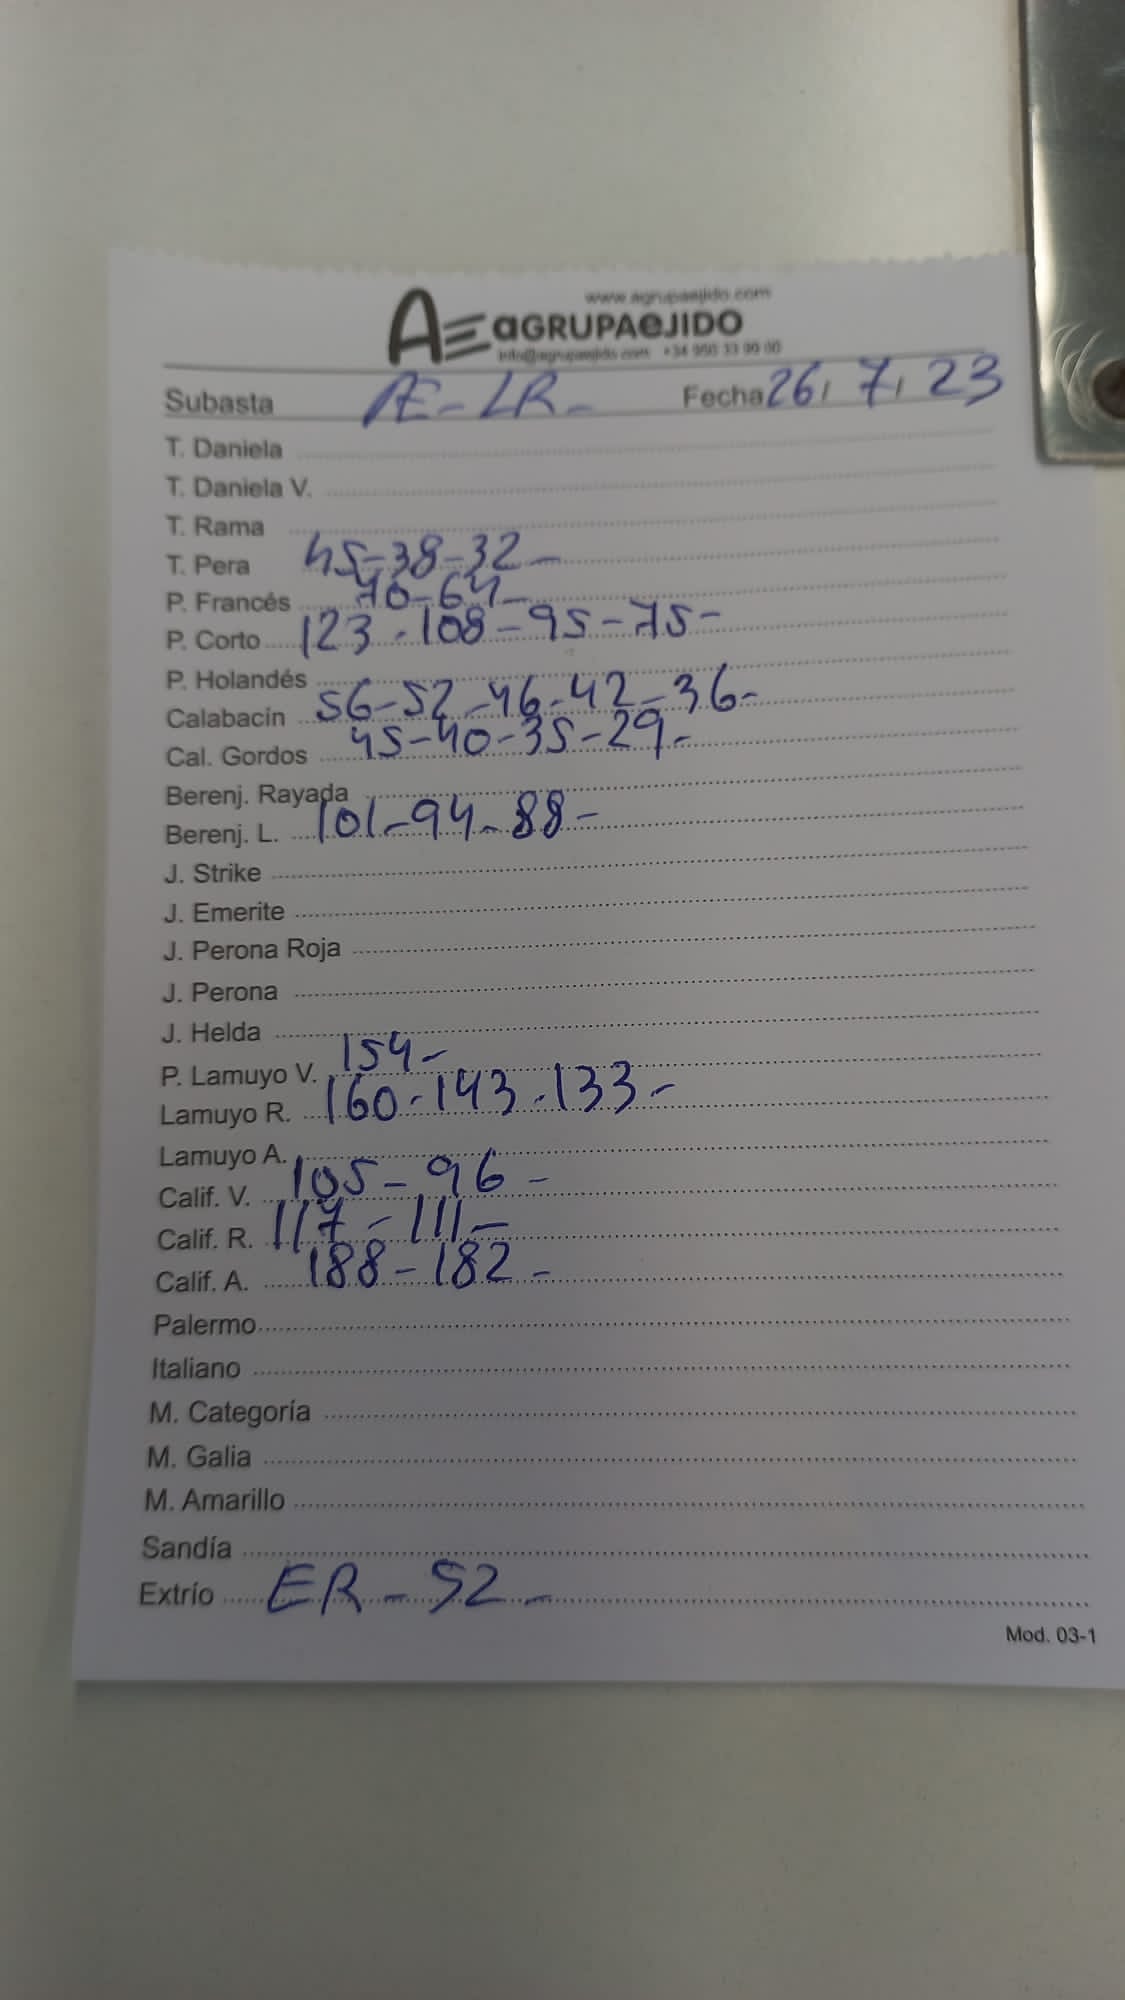 www.agrupaejido.com
AE aGRUPAeJIDO
info@agrupaejido.com +34 950 33 90 00
Subasta AE - LR - Fecha 26/ 7/ 23
T. Daniela
T. Daniela V.
T. Rama
T. Pera 45-38-32-
P. Francés 70-64-
P. Corto 123-108-95-75-
P. Holandés
Calabacín 56-52-46-42-36-
Cal. Gordos 45-40-35-29-
Berenj. Rayada
Berenj. L. 101-94-88-
J. Strike
J. Emerite
J. Perona Roja
J. Perona
J. Helda
P. Lamuyo V. 154-
Lamuyo R. 160-143-133-
Lamuyo A.
Calif. V. 105-96-
Calif. R. 117-111-
Calif. A. 188-182-
Palermo
Italiano
M. Categoría
M. Galia
M. Amarillo
Sandía
Extrío ER - 52 -
Mod. 03-1